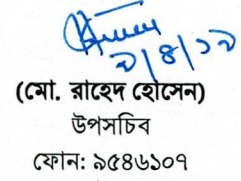 ২/৪/১৯
(মো. রাহেদ হোসেন)
উপসচিব
ফোন: ৯৫৪৬১০৭